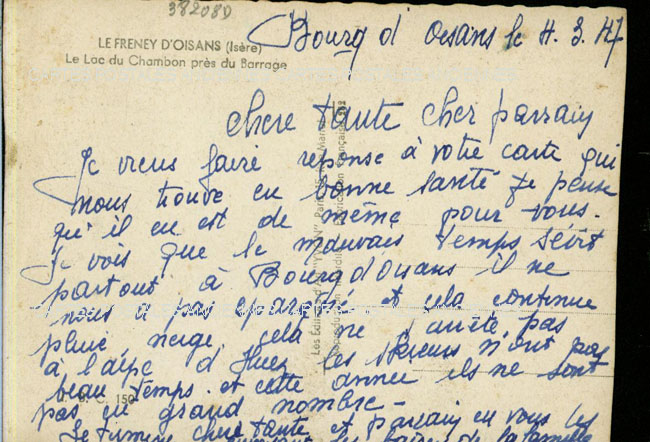 382080
LE FRENEY D'OISANS (Isère)
Le Lac du Chambon près du Barrage
Bourg d' Oisans le 4. 3. 47
chere tante cher parrain
Je viens faire reponse à votre carte qui
nous trouve en bonne santé je pense
qu'il en est de même pour vous.
Je vois que le mauvais temps sévit
partout à Bourg d'Oisans il ne
nous a pas épargné et cela continue
pluie neige cela ne s'arrête pas
à l'alpe d'Huez les skieurs n'ont pas
beau temps et cette année ils ne sont
pas en grand nombre -
Je termine chere tante et parrain en vous
les baisers de la famille
150